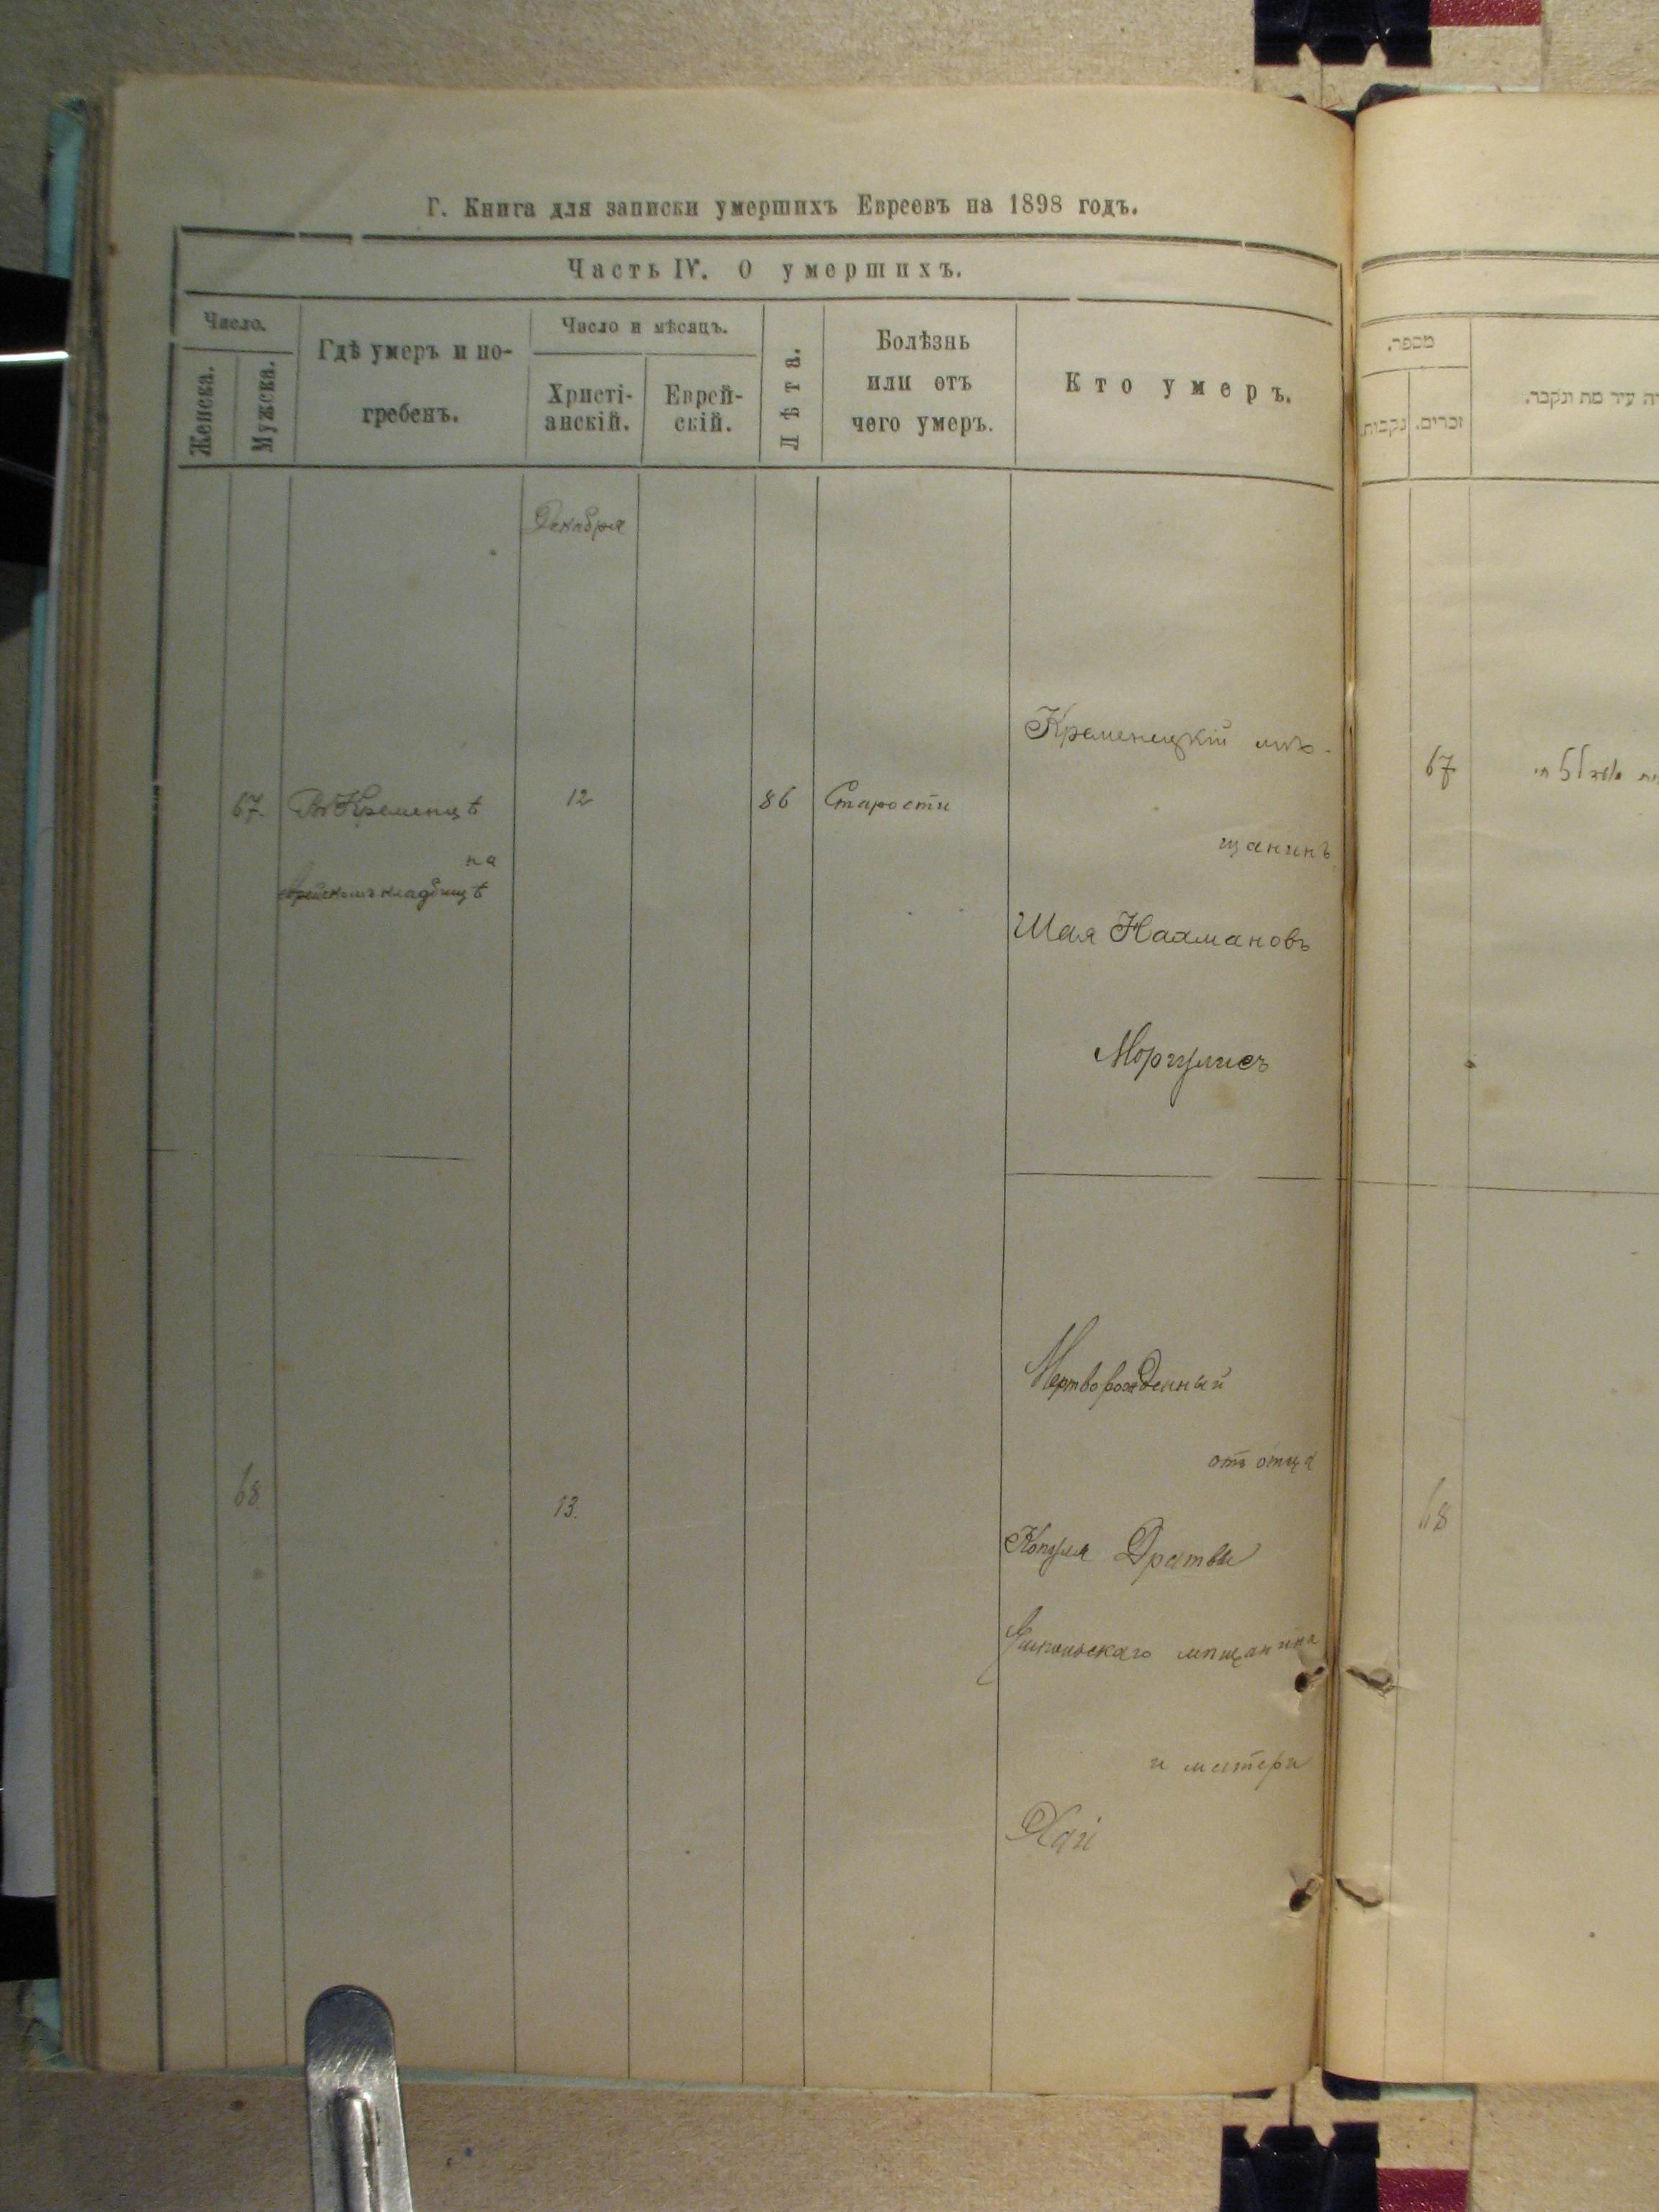 Г. Книга для записки умершихъ Евреевъ на 1898 годъ.
Часть IV. О умершихъ.
Число.
Женска.
Мужска.
Гдѣ умеръ и по-
гребенъ.
Число и мѣсяцъ.
Христі-
анскій.
Еврей-
скій.
Лѣта.
Болѣзнь
или отъ
чего умеръ.
Кто умеръ.
Декабря
67.
Въ Кременцѣ
на
еврейскомъ кладбищѣ
12
86
Старости
Кременецкій мѣ-
щанинъ
Шая Нахмановъ
Моргулисъ
68
13.
Мертворожденный
отъ отца
Дратвы
мѣщанина
и матери
Хаи
מספר.
נקבות.
זכרים.
עיר מת ונקבר.
67
68